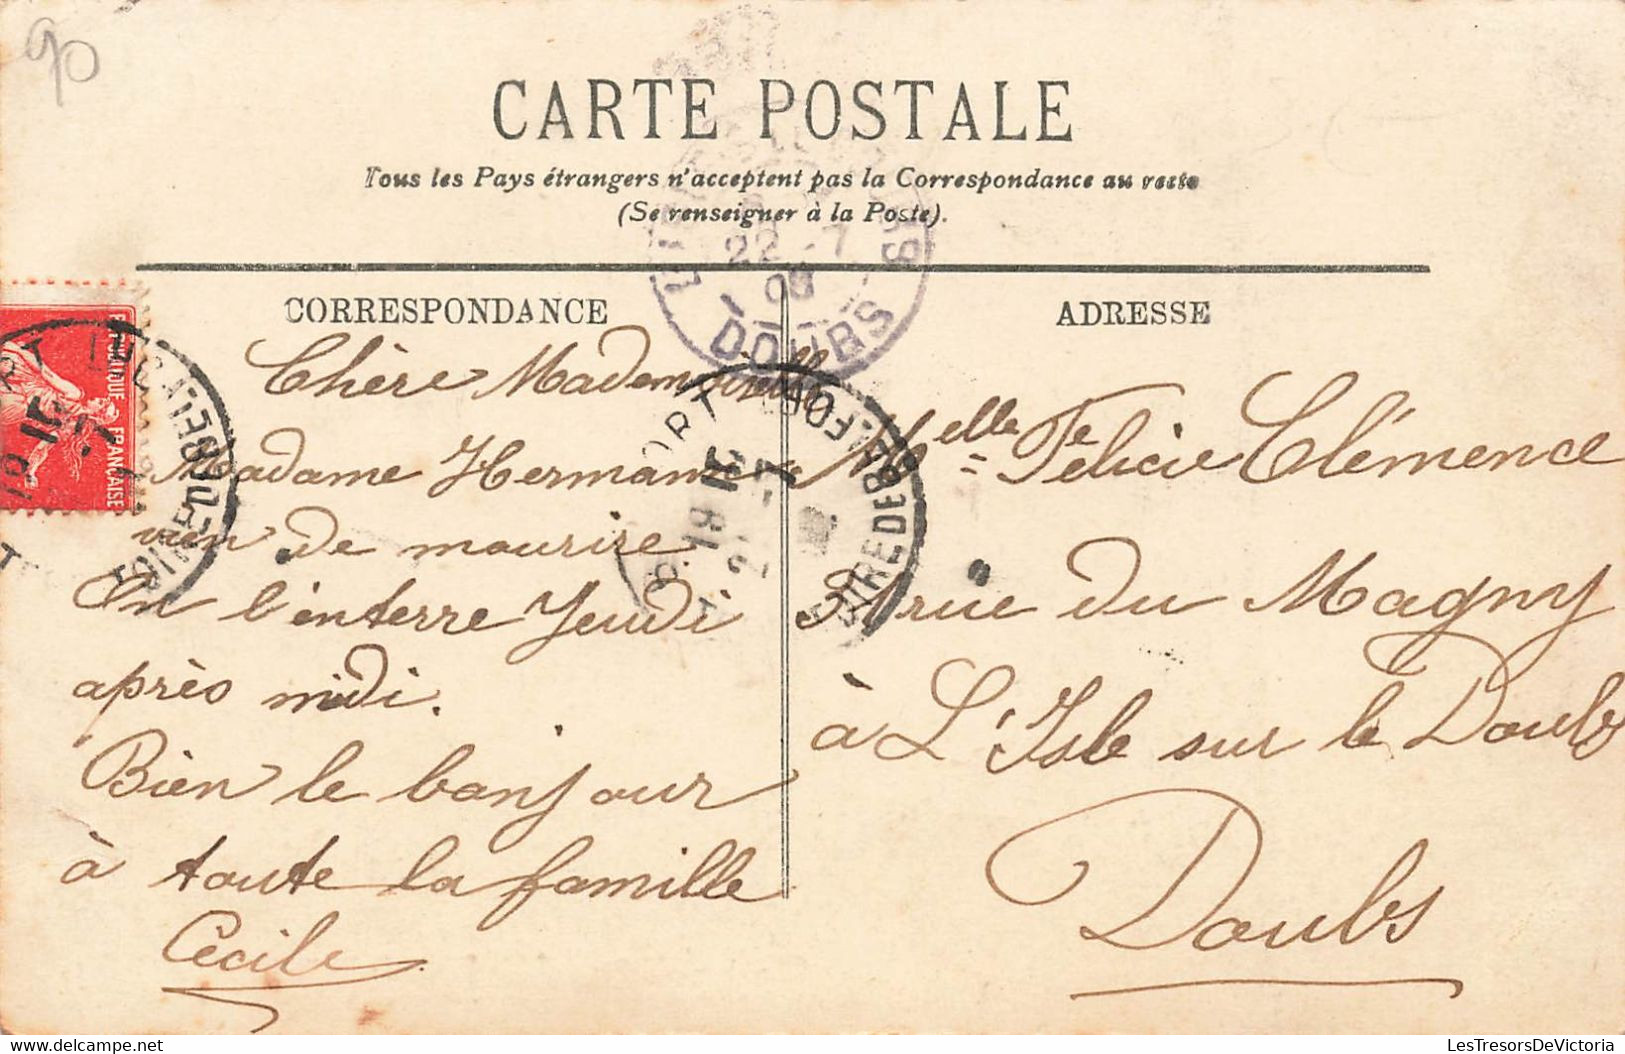 90
CARTE POSTALE
Tous les Pays étrangers n'acceptent pas la Correspondance au recto
(Se renseigner à la Poste).
CORRESPONDANCE
Chère Mademoiselle
Madame Hermann
vien de mourire
On l'enterre Jeudi
après midi.
Bien le bonjour
à toute la famille
Cécile
ADRESSE
Melle Félicie Clémence
rue du Magny
à L'Isle sur le Doubs
Doubs
REPUBLIQUE FRANÇAISE
DOUBS
22 - 7
09
BELFORT
TOIRE DE BELFORT
LesTresorsDeVictoria
delcampe.net
LesTresorsDeVictoria.com